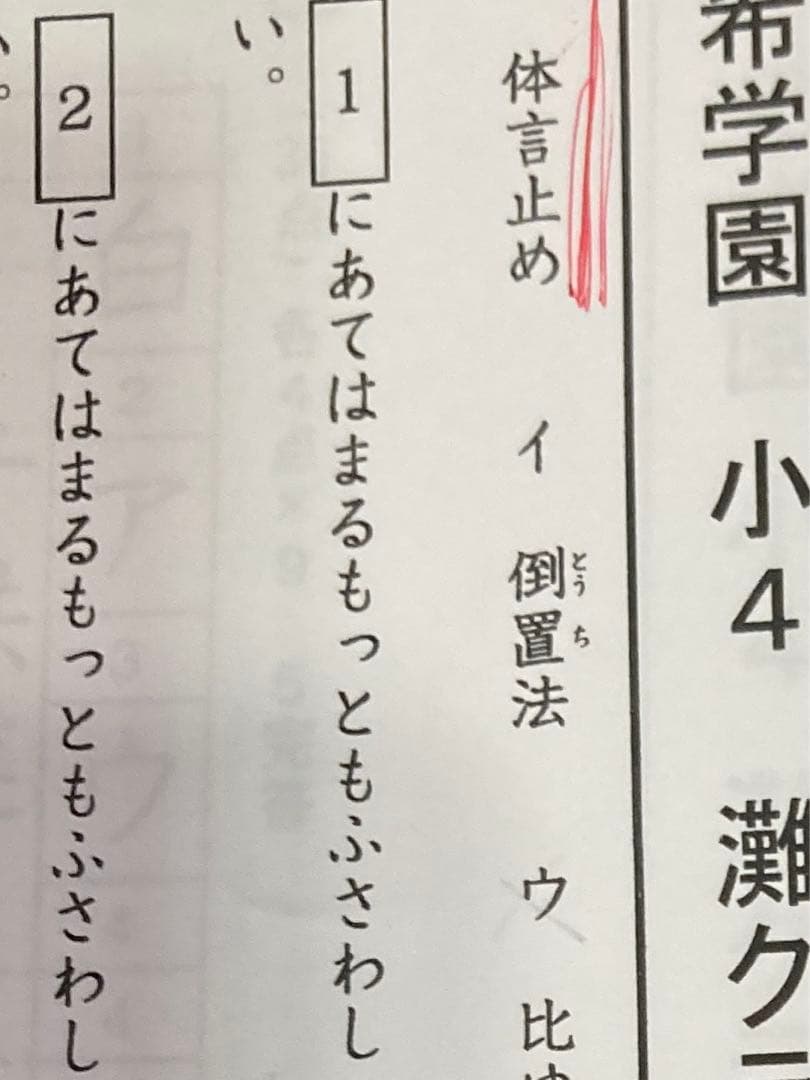 希学園 小4 灘ク
体言止め イ 倒置法 ウ 比
とうち
1 にあてはまるもっともふさわし
い。
2 にあてはまるもっともふさわし